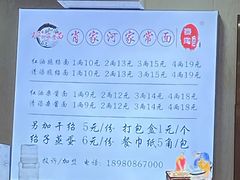 肖家河家常面
红油燃绍面 1两10元 2两13元 3两15元 4两19元
清汤燃绍面 1两10元 2两13元 3两15元 4两19元
红油杂酱面 1两9元 2两12元 3两14元 4两18元
清汤杂酱面 1两9元 2两12元 3两14元 4两18元
另加干绍 5元/份 打包盒1元/个
绍子蒸蛋 6元/份 餐巾纸5角/包
投诉/加盟 电话：18980867000